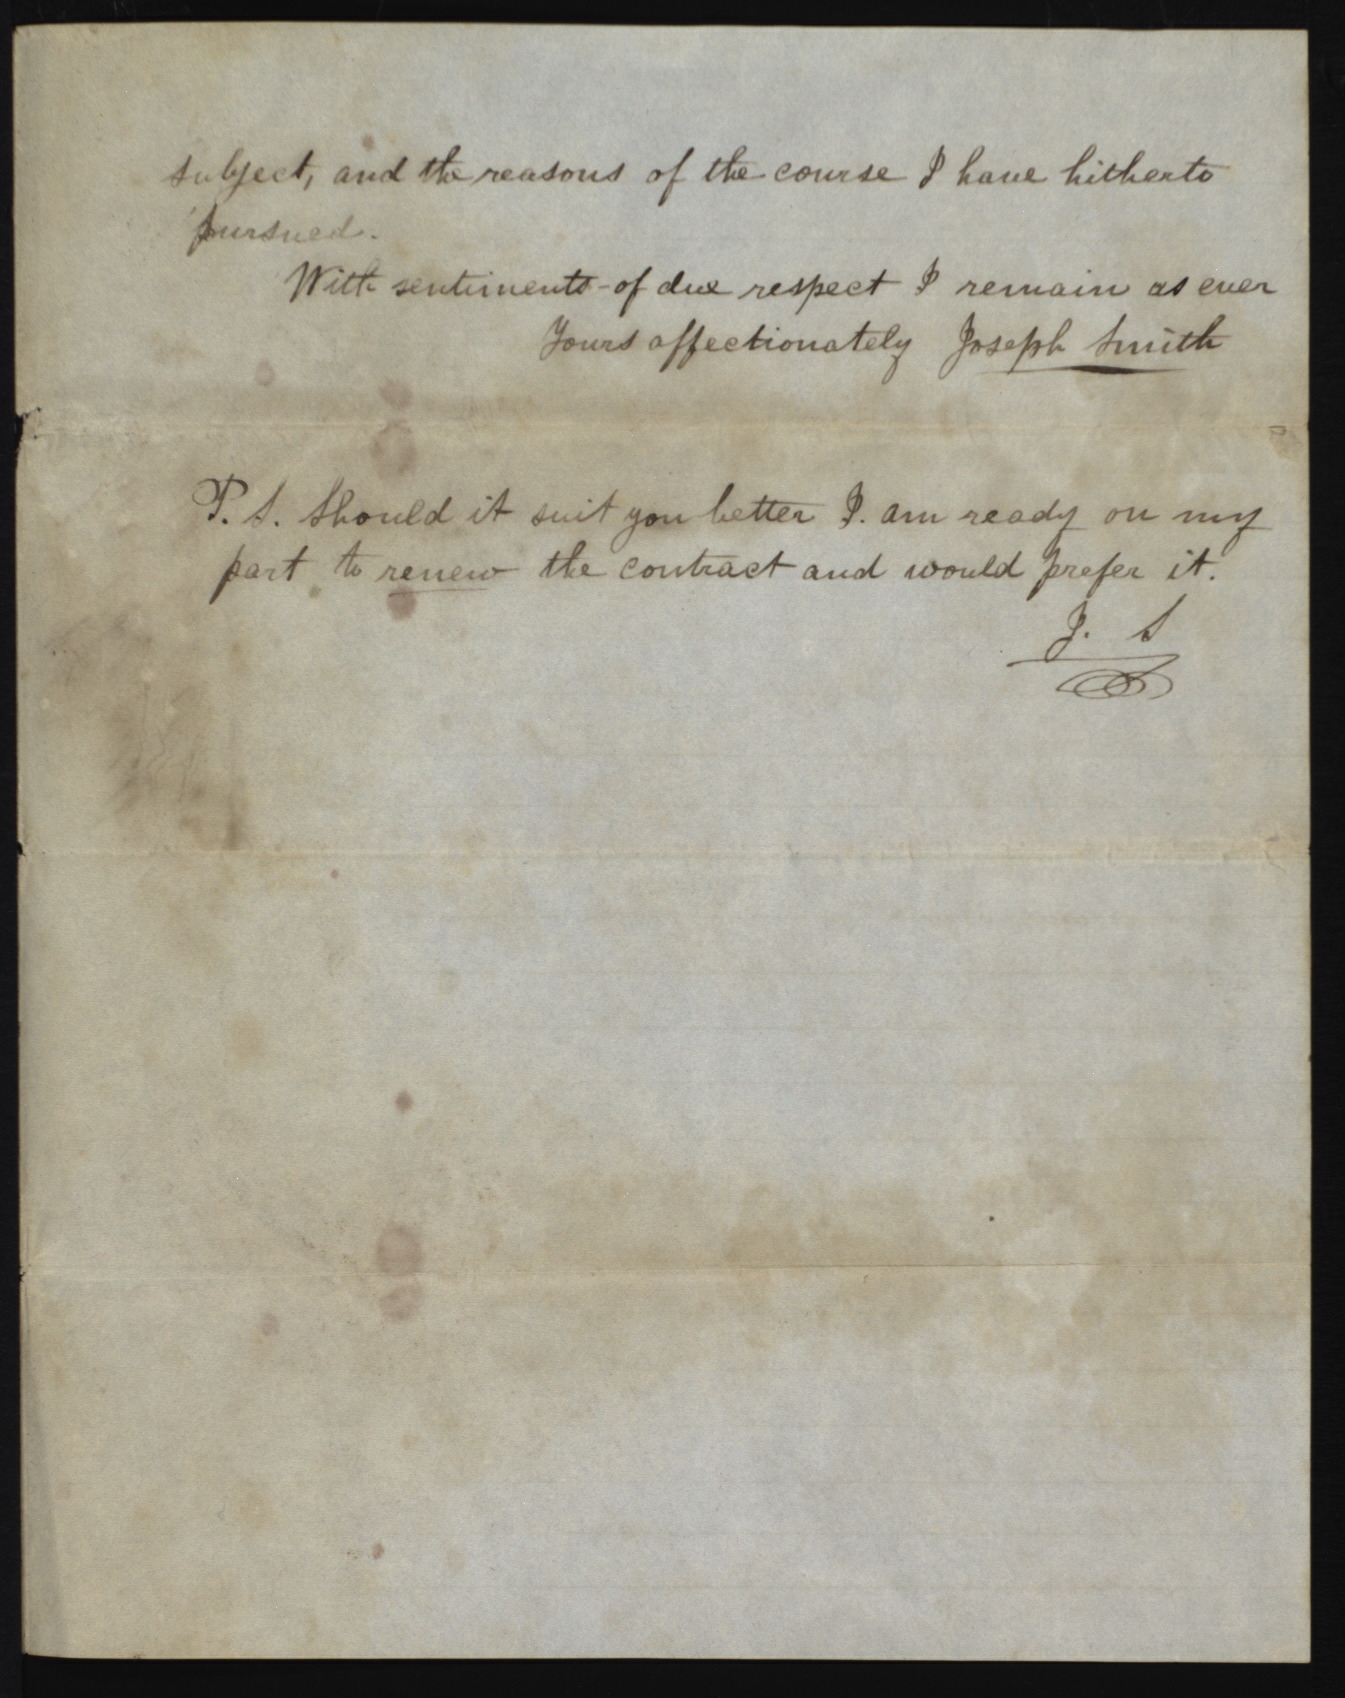 subject, and the reasons of the course I have hitherto
pursued.
With sentiments of due respect I remain as ever
Yours affectionately Joseph Smith
P. S. Should it suit you better I. am ready on my
part to renew the contract and would prefer it.
J. S